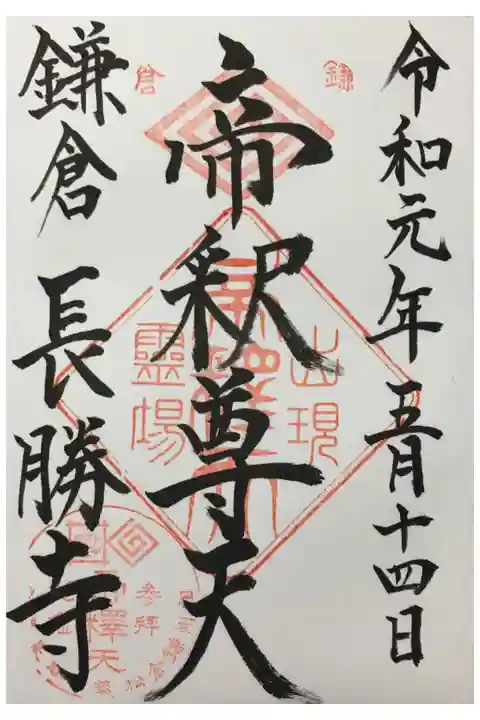 令和元年五月十四日
鎌
倉
帝釈尊天
出現
靈場
鎌倉 長勝寺
参拝